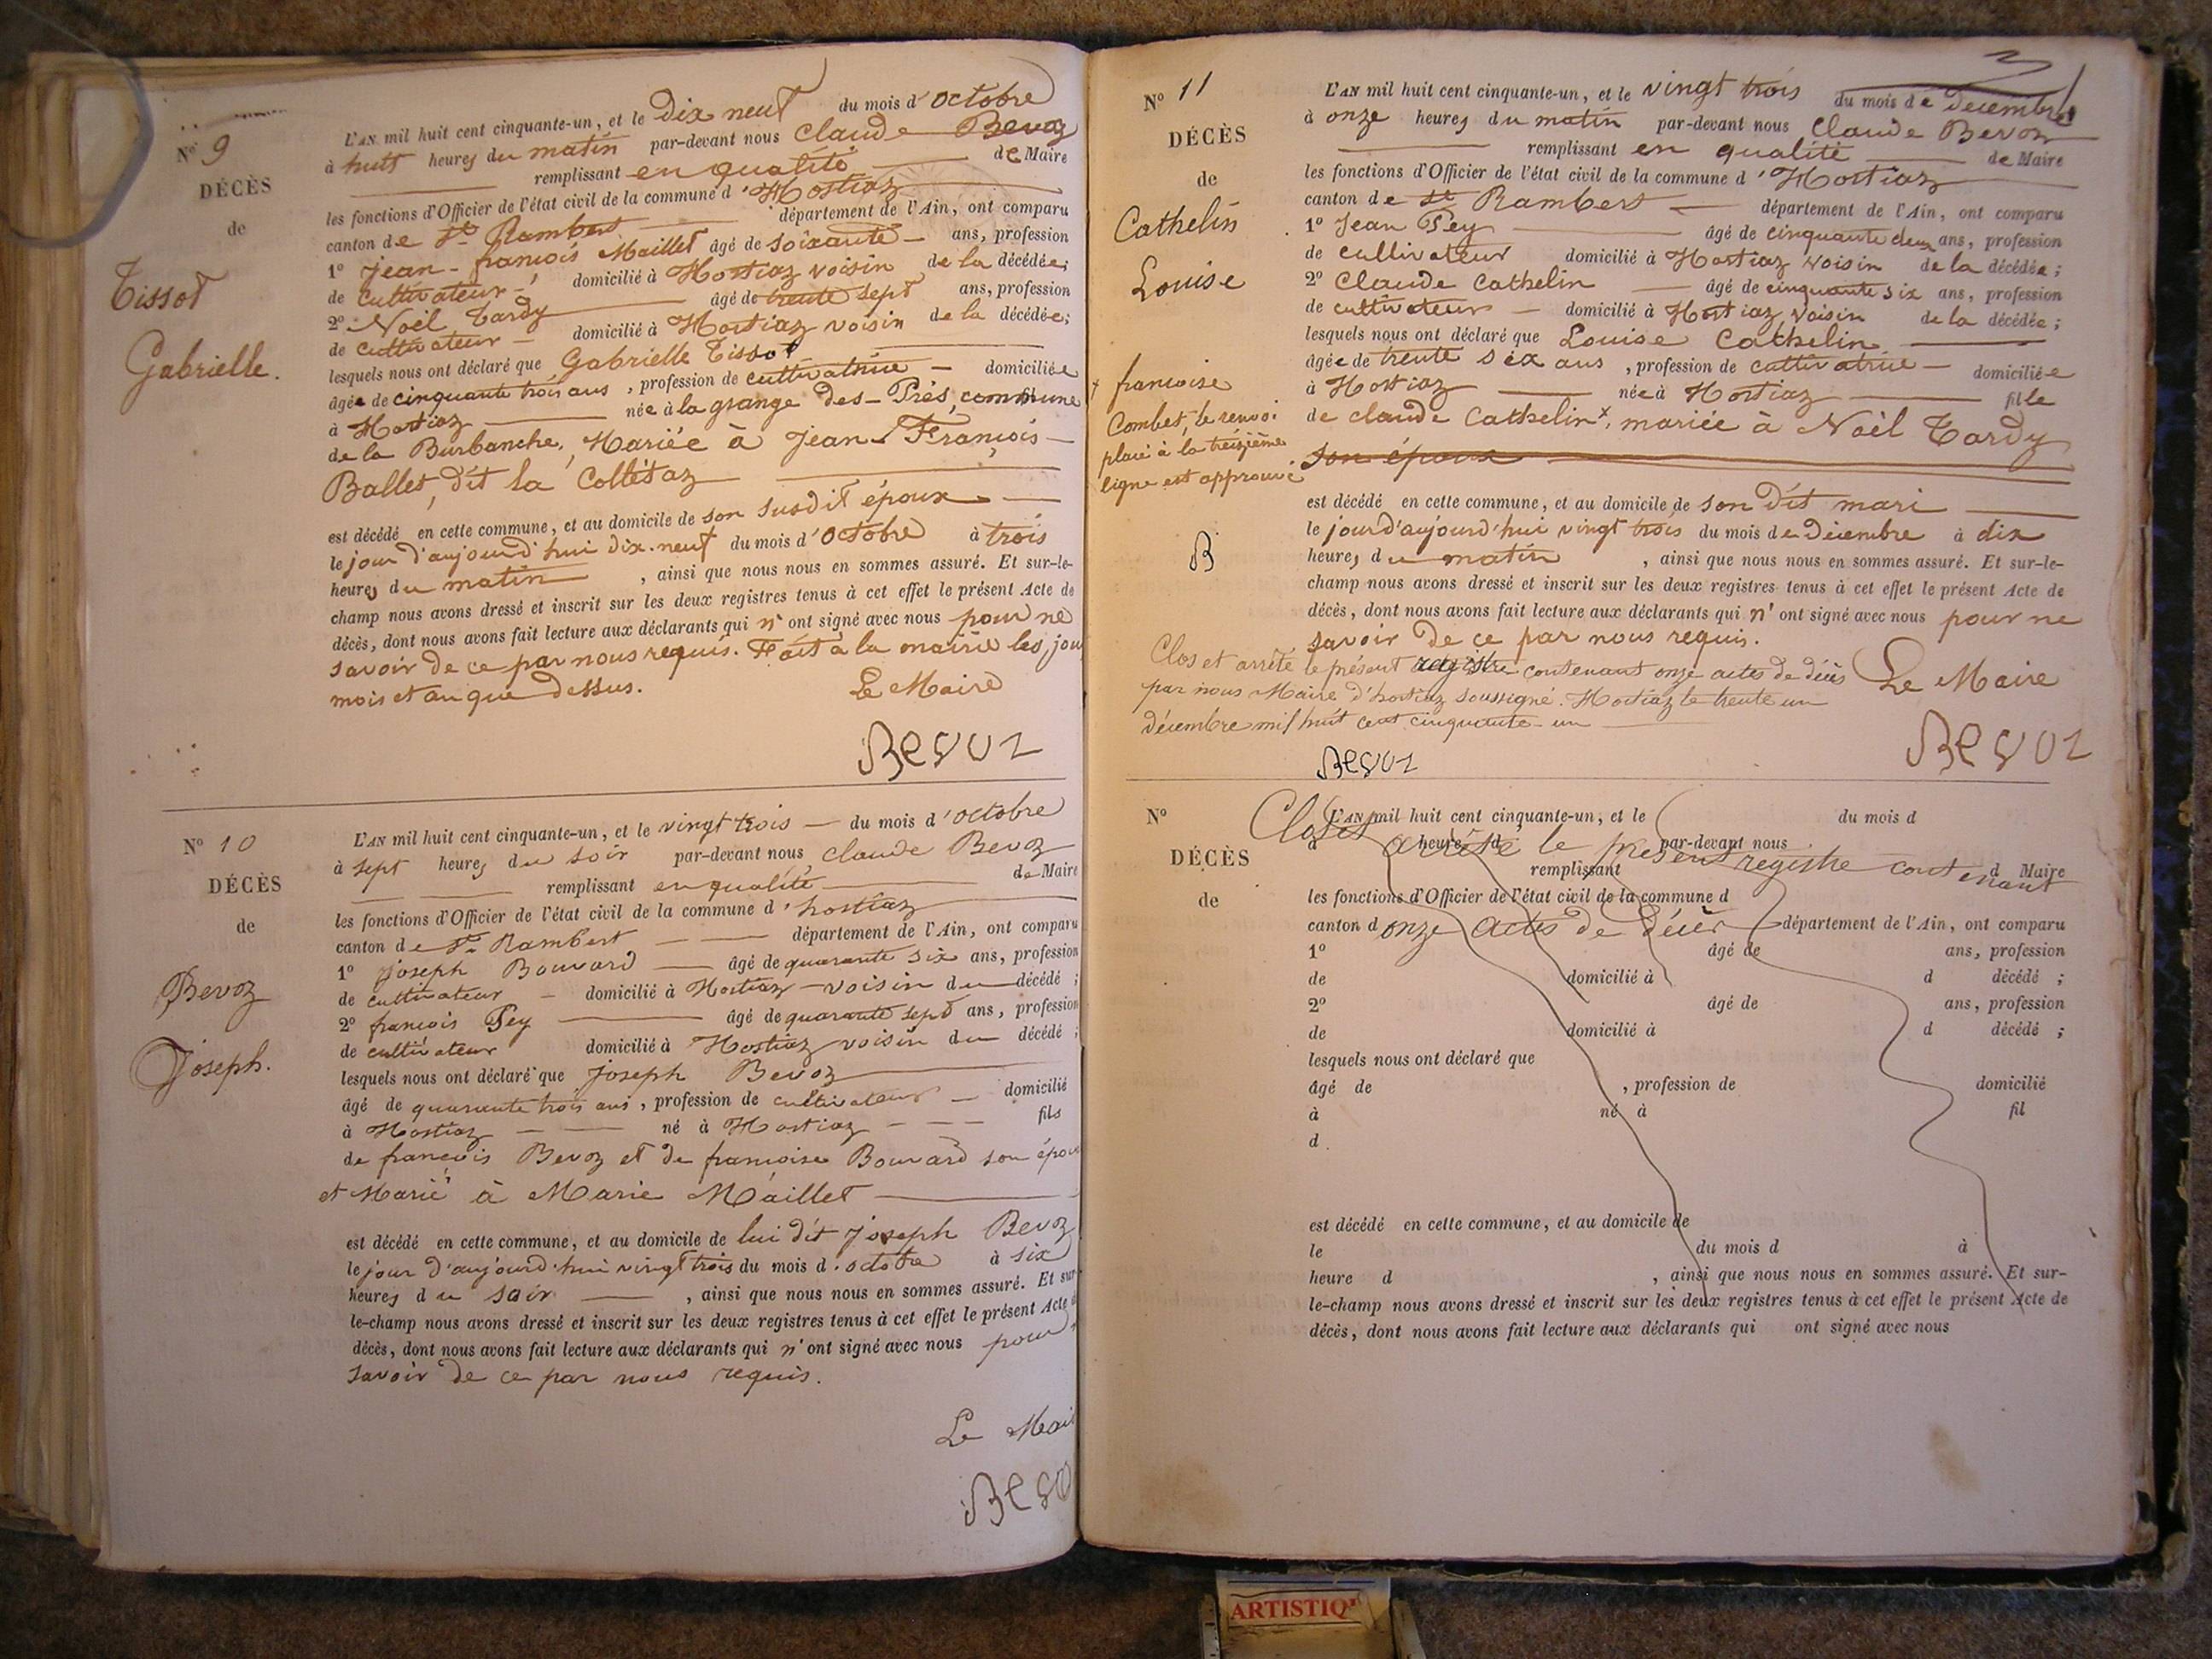 Nº 9
DÉCÈS
de
Tissot
Gabrielle.
L'AN mil huit cent cinquante-un, et le Dix neuf du mois d'Octobre
à huit heures du matin par-devant nous Claude Bevoz
remplissant en qualité de Maire
les fonctions d'Officier de l'état civil de la commune d'Hostiaz
canton de St. Rambert département de l'Ain, ont comparu
1º Jean-françois Maillet âgé de soixante ans, profession
de cultivateur domicilié à Hostiaz voisin de la décédée;
2º Noël Tardy âgé de trente sept ans, profession
de cultivateur domicilié à Hostiaz voisin de la décédée;
lesquels nous ont déclaré que Gabrielle Tissot
âgée de cinquante trois ans, profession de cultivatrice domiciliée
à Hostiaz née à la grange des-Prés, commune
de la Burbanche, Mariée à Jean-François
Ballet, dit la Colletaz
est décédé en cette commune, et au domicile de son susdit époux
le jour d'aujourd'hui dix-neuf du mois d'Octobre à trois
heures du matin, ainsi que nous nous en sommes assuré. Et sur-le-
champ nous avons dressé et inscrit sur les deux registres tenus à cet effet le présent Acte de
décès, dont nous avons fait lecture aux déclarants qui n'ont signé avec nous pour ne
savoir de ce par nous requis. Fait à la mairie les jour
mois et an que dessus.
Le Maire
Bevoz
Nº 10
DÉCÈS
de
Bevoz
Joseph.
L'AN mil huit cent cinquante-un, et le vingt trois du mois d'octobre
à sept heures du soir par-devant nous Claude Bevoz
remplissant en qualité de Maire
les fonctions d'Officier de l'état civil de la commune d'hostiaz
canton de St. Rambert département de l'Ain, ont comparu
1º joseph Bouvard âgé de quarante six ans, profession
de cultivateur domicilié à Hostiaz voisin du décédé ;
2º françois Pey âgé de quarante sept ans, profession
de cultivateur domicilié à Hostiaz voisin du décédé ;
lesquels nous ont déclaré que joseph Bevoz
âgé de quarante trois ans, profession de cultivateur domicilié
à Hostiaz né à Hostiaz fils
de françois Bevoz et de françoise Bouvard son épou
et Marié à Marie Maillet
est décédé en cette commune, et au domicile de lui dit joseph Bevoz
le jour d'aujourd'hui vingt trois du mois d'octobre à six
heures du soir, ainsi que nous nous en sommes assuré. Et sur
le-champ nous avons dressé et inscrit sur les deux registres tenus à cet effet le présent Acte
décès, dont nous avons fait lecture aux déclarants qui n'ont signé avec nous pour
savoir de ce par nous requis.
Le Mai
Bevo
Nº 11
DÉCÈS
de
Cathelin
Louise
françoise
Combet, le renvoi
placé à la treizième
ligne est approuvé
B
L'AN mil huit cent cinquante-un, et le vingt trois du mois de décembre
à onze heures du matin par-devant nous Claude Bevoz
remplissant en qualité de Maire
les fonctions d'Officier de l'état civil de la commune d'Hostiaz
canton de St. Rambert département de l'Ain, ont comparu
1º Jean Pey âgé de cinquante deux ans, profession
de cultivateur domicilié à Hostiaz voisin de la décédée ;
2º Claude Cathelin âgé de cinquante six ans, profession
de cultivateur domicilié à Hostiaz voisin de la décédée ;
lesquels nous ont déclaré que Louise Cathelin
âgée de trente six ans, profession de cultivatrice domiciliée
à Hostiaz née à Hostiaz fille
de claude Cathelin x, mariée à Noël Tardy
son époux
est décédé en cette commune, et au domicile de son dit mari
le jour d'aujourd'hui vingt trois du mois de décembre à dix
heures du matin, ainsi que nous nous en sommes assuré. Et sur-le-
champ nous avons dressé et inscrit sur les deux registres tenus à cet effet le présent Acte de
décès, dont nous avons fait lecture aux déclarants qui n'ont signé avec nous pour ne
savoir de ce par nous requis.
Clos et arrêté le présent registre contenant onze actes de décès
par nous Maire d'hostiaz soussigné. Hostiaz le trente un
décembre mil huit cent cinquante-un
Le Maire
Bevoz
Bevoz
Nº
DÉCÈS
de
L'AN mil huit cent cinquante-un, et le du mois d
à heure d par-devant nous
Clos et arrêté le présent registre contenant
remplissant d Maire
les fonctions d'Officier de l'état civil de la commune d
canton d département de l'Ain, ont comparu
onze actes de décès
1º âgé de ans, profession
de domicilié à d décédé ;
2º âgé de ans, profession
de domicilié à d décédé ;
lesquels nous ont déclaré que
âgé de , profession de domicilié
à né à fil
d
est décédé en cette commune, et au domicile de
le du mois d à
heure d , ainsi que nous nous en sommes assuré. Et sur-
le-champ nous avons dressé et inscrit sur les deux registres tenus à cet effet le présent Acte de
décès, dont nous avons fait lecture aux déclarants qui ont signé avec nous
ARTISTIQ